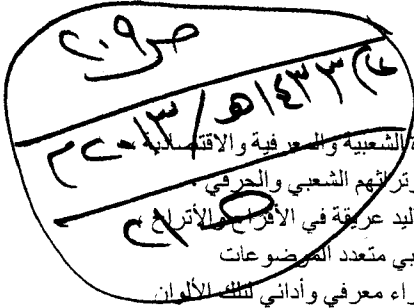 ص ٢٠٩
١٤٣٣هـ /
ة الشعبية والمعرفية والاقتصادية ،
وتراثهم الشعبي والحرفي .
ليد عريقة في الأفراح والأتراح ،
بي متعدد الموضوعات
راء معرفي وأدائي لتلك الألوان